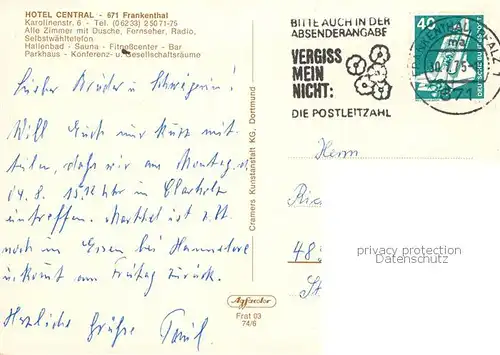 HOTEL CENTRAL - 671 Frankenthal
Karolinenstr. 6 - Tel. (06233) 25071-75
Alle Zimmer mit Dusche, Fernseher, Radio,
Selbstwähltelefon
Hallenbad - Sauna - Fitneßcenter - Bar
Parkhaus - Konferenz- u. Gesellschaftsräume
BITTE AUCH IN DER
ABSENDERANGABE
VERGISS
MEIN
NICHT:
DIE POSTLEITZAHL
40
DEUTSCHE BUNDESPOST
FRANKENTHAL, PFALZ 1
671
Lieber Bruder u. Schwägerin!
Will Euch nur kurz mit-
teilen, daß wir am Montag d.
04.8. Uhr in Clarholz
eintreffen. ist z. Zt.
noch in Essen bei Hannelore
u. kommt am Freitag zurück.
Herzliche Grüße
Herrn
48
St
Cramers Kunstanstalt KG, Dortmund
Agfacolor
Frat 03
74/6
privacy protection
(C) akpool.de